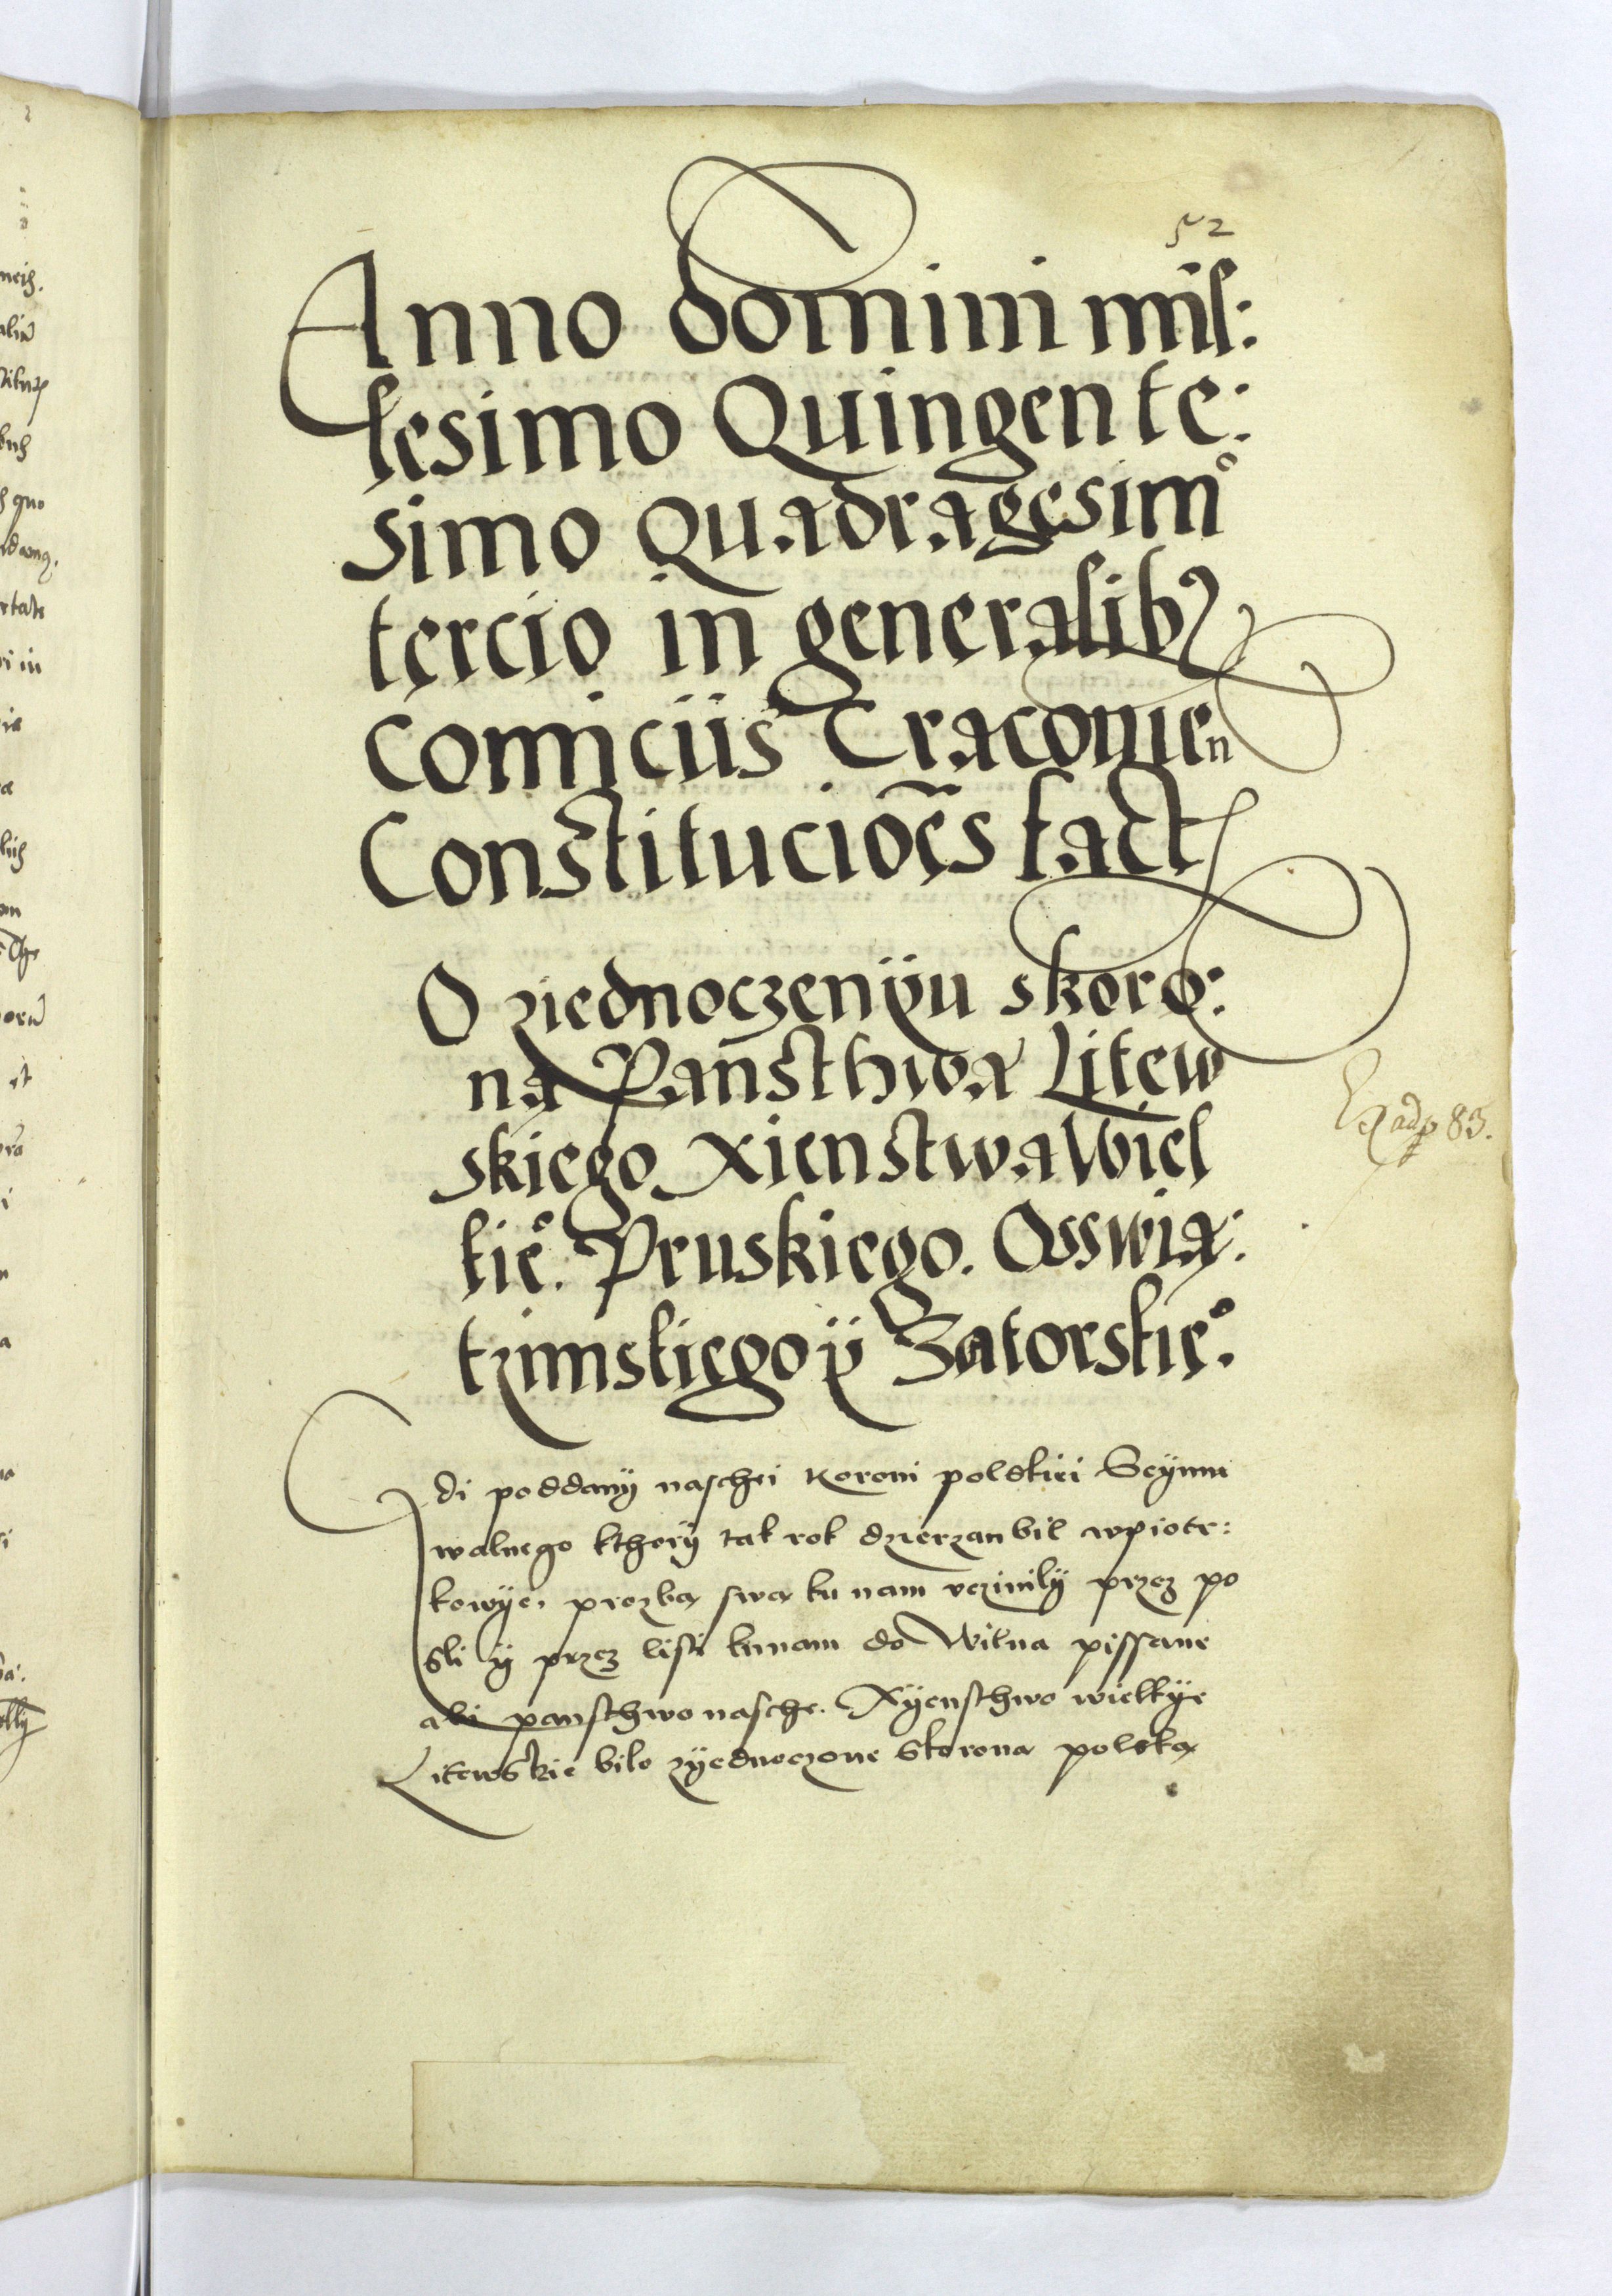 52
Anno domini mil:
lesimo Quingente:
simo Quadragesim°
tercio in generalibꝫ
Comiciis Cracouien
Constitucioēs fact
O ziednoczenÿu skoro:
ną Pansthwa Litew
skiego Xienstwa wiel
kie°. Pruskiego. Osswią:
tzimskiego ÿ Zatorskie°.
Gdi poddanÿ naschei Koroni polskiei Seÿmu
walnego kthorÿ tak rok dzierzan bil wpiotr:
kowÿe, prozbą swą ku nam vczinilÿ przez po
sli ÿ przez listi kunam do Wilna pissane
abi pansthwo nasche. Xÿensthwo wielkÿe
Litewskie bilo zÿednoczone skorona polską
ad p 83.